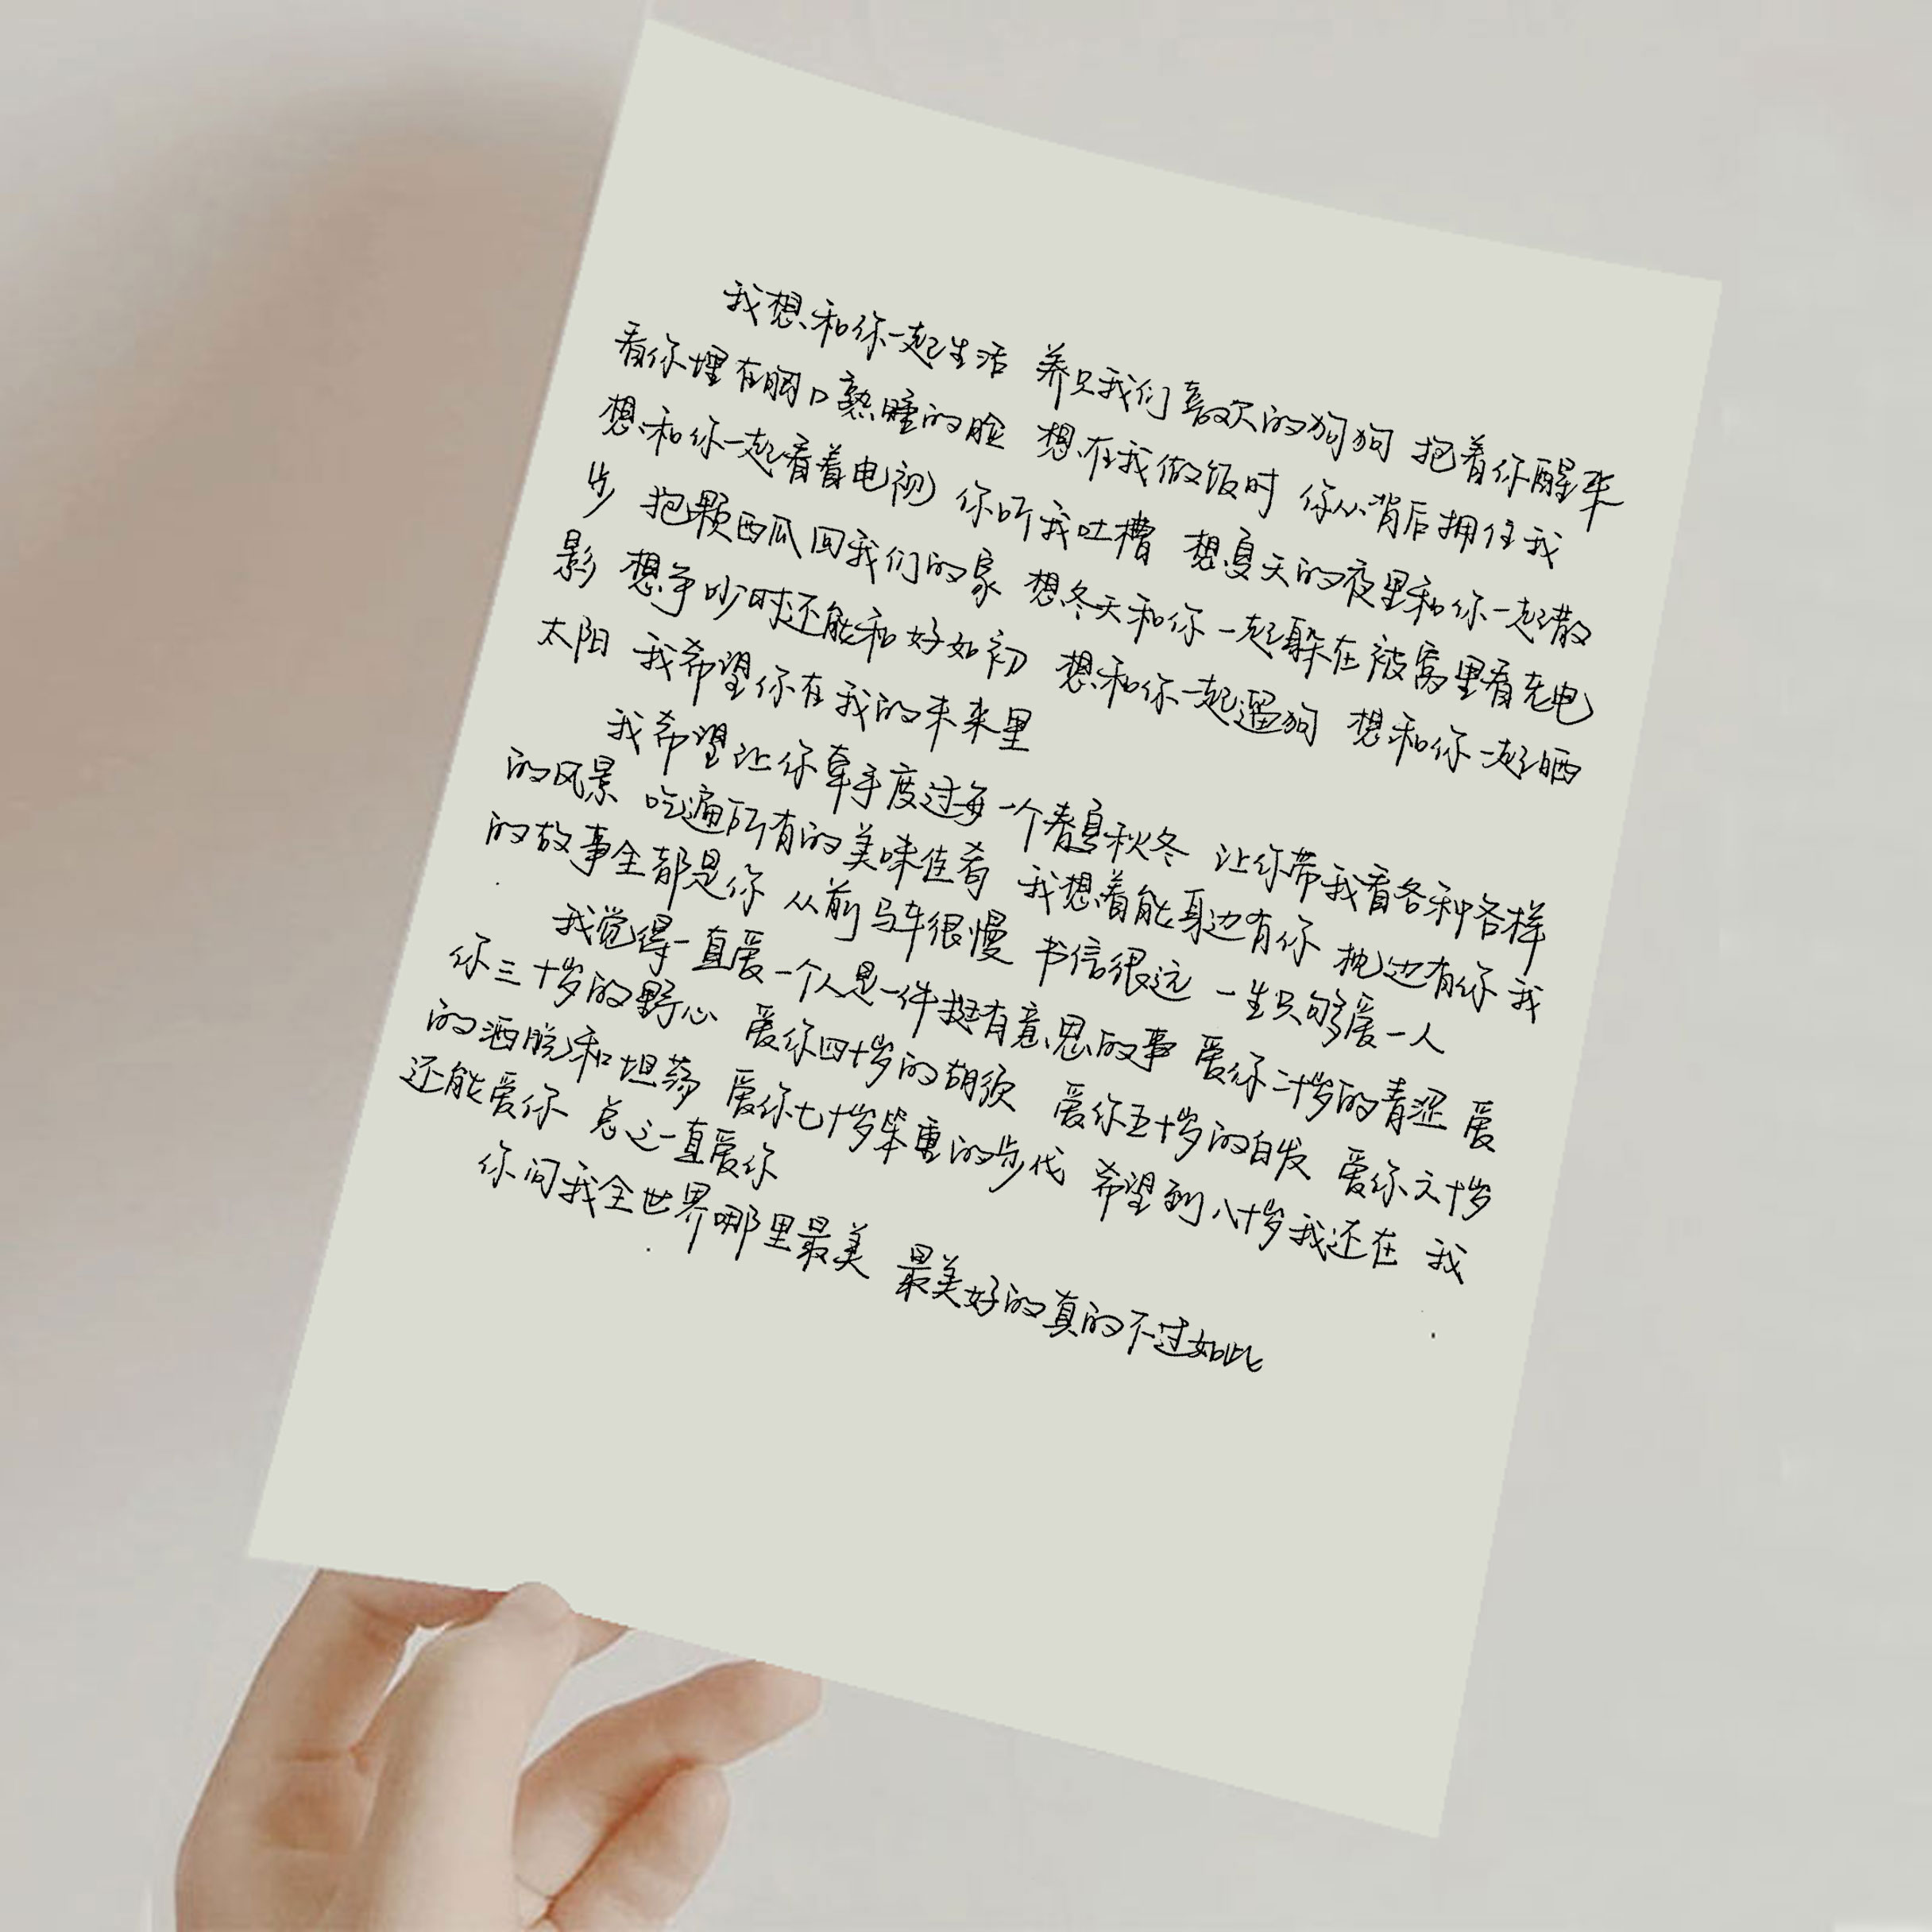 我想和你一起生活 养只我们喜欢的狗狗 抱着你醒来
看你埋在胸口熟睡的脸 想在我做饭时 你从背后拥住我
想和你一起看着电视 你听我吐槽 想夏天的夜里和你一起散
步 抱颗西瓜回我们的家 想冬天和你一起躲在被窝里看老电
影 想争吵时还能和好如初 想和你一起遛狗 想和你一起晒
太阳 我希望你在我的未来里
我希望让你牵手度过每一个春夏秋冬 让你带我看各种各样
的风景 吃遍所有的美味佳肴 我想着能身边有你 枕边有你 我
的故事全都是你 从前马车很慢 书信很远 一生只够爱一人
我觉得一直爱一个人是一件挺有意思的事 爱你二十岁的青涩 爱
你三十岁的野心 爱你四十岁的胡须 爱你五十岁的白发 爱你六十岁
的洒脱和坦荡 爱你七十岁笨重的步伐 希望到八十岁我还在 我
还能爱你 总之一直爱你
你问我全世界哪里最美 最美好的真的不过如此